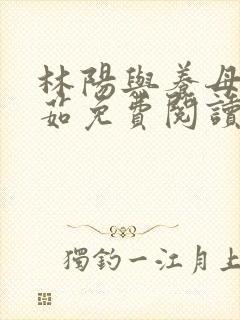 林陽與養母
茹免費閱讀
獨釣一江月上